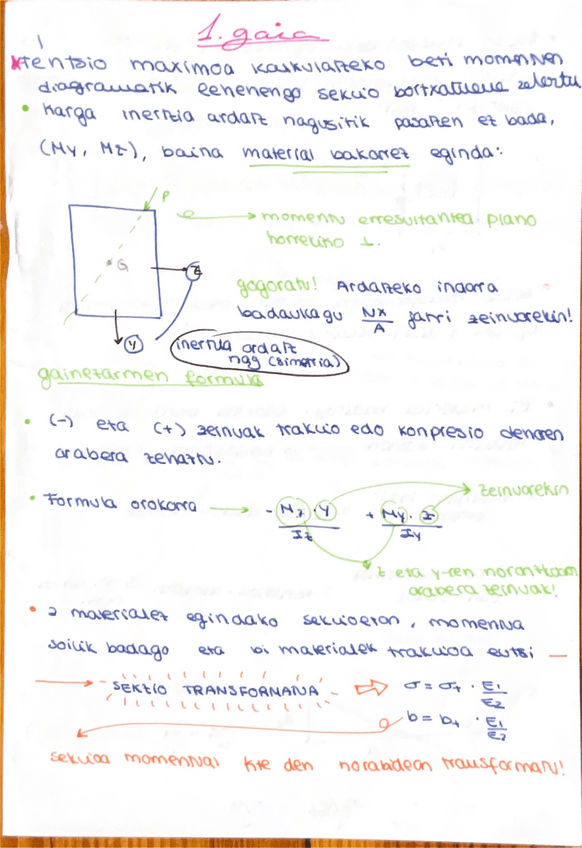 1. gaia
* tentsio maximoa kalkulatzeko beti momentuen
diagramatik lehenengo sekzio bortxatuena zehaztu
• Karga inertzia ardatz nagusitik pasatzen ez bada,
(My, Mz), baina material bakarrez eginda:
P
momentu erresultantea plano
horrekiko ⊥.
G
z
gogoratu! Ardatzeko indarra
badaukagu Nx/A jarri zeinuarekin!
y
inertzia ardatz
nag (simetria)
gainezarmen formula
• (-) eta (+) zeinuak trakzio edo konpresio denaren
arabera zehaztu.
• Formula orokorra → - Mz · y / Iz + My · z / Iy
zeinuarekin
z eta y-ren norantzaren
arabera zeinuak!
• 2 materialez egindako sekzioetan, momentua
soilik badago eta bi materialek trakzioa eutsi —
→ SEKZIO TRANSFORMATUA ⇒ σ = σt · E1/E2
b = bt · E1/E2
sekzioa momentuai kte den norabidean transformatu!